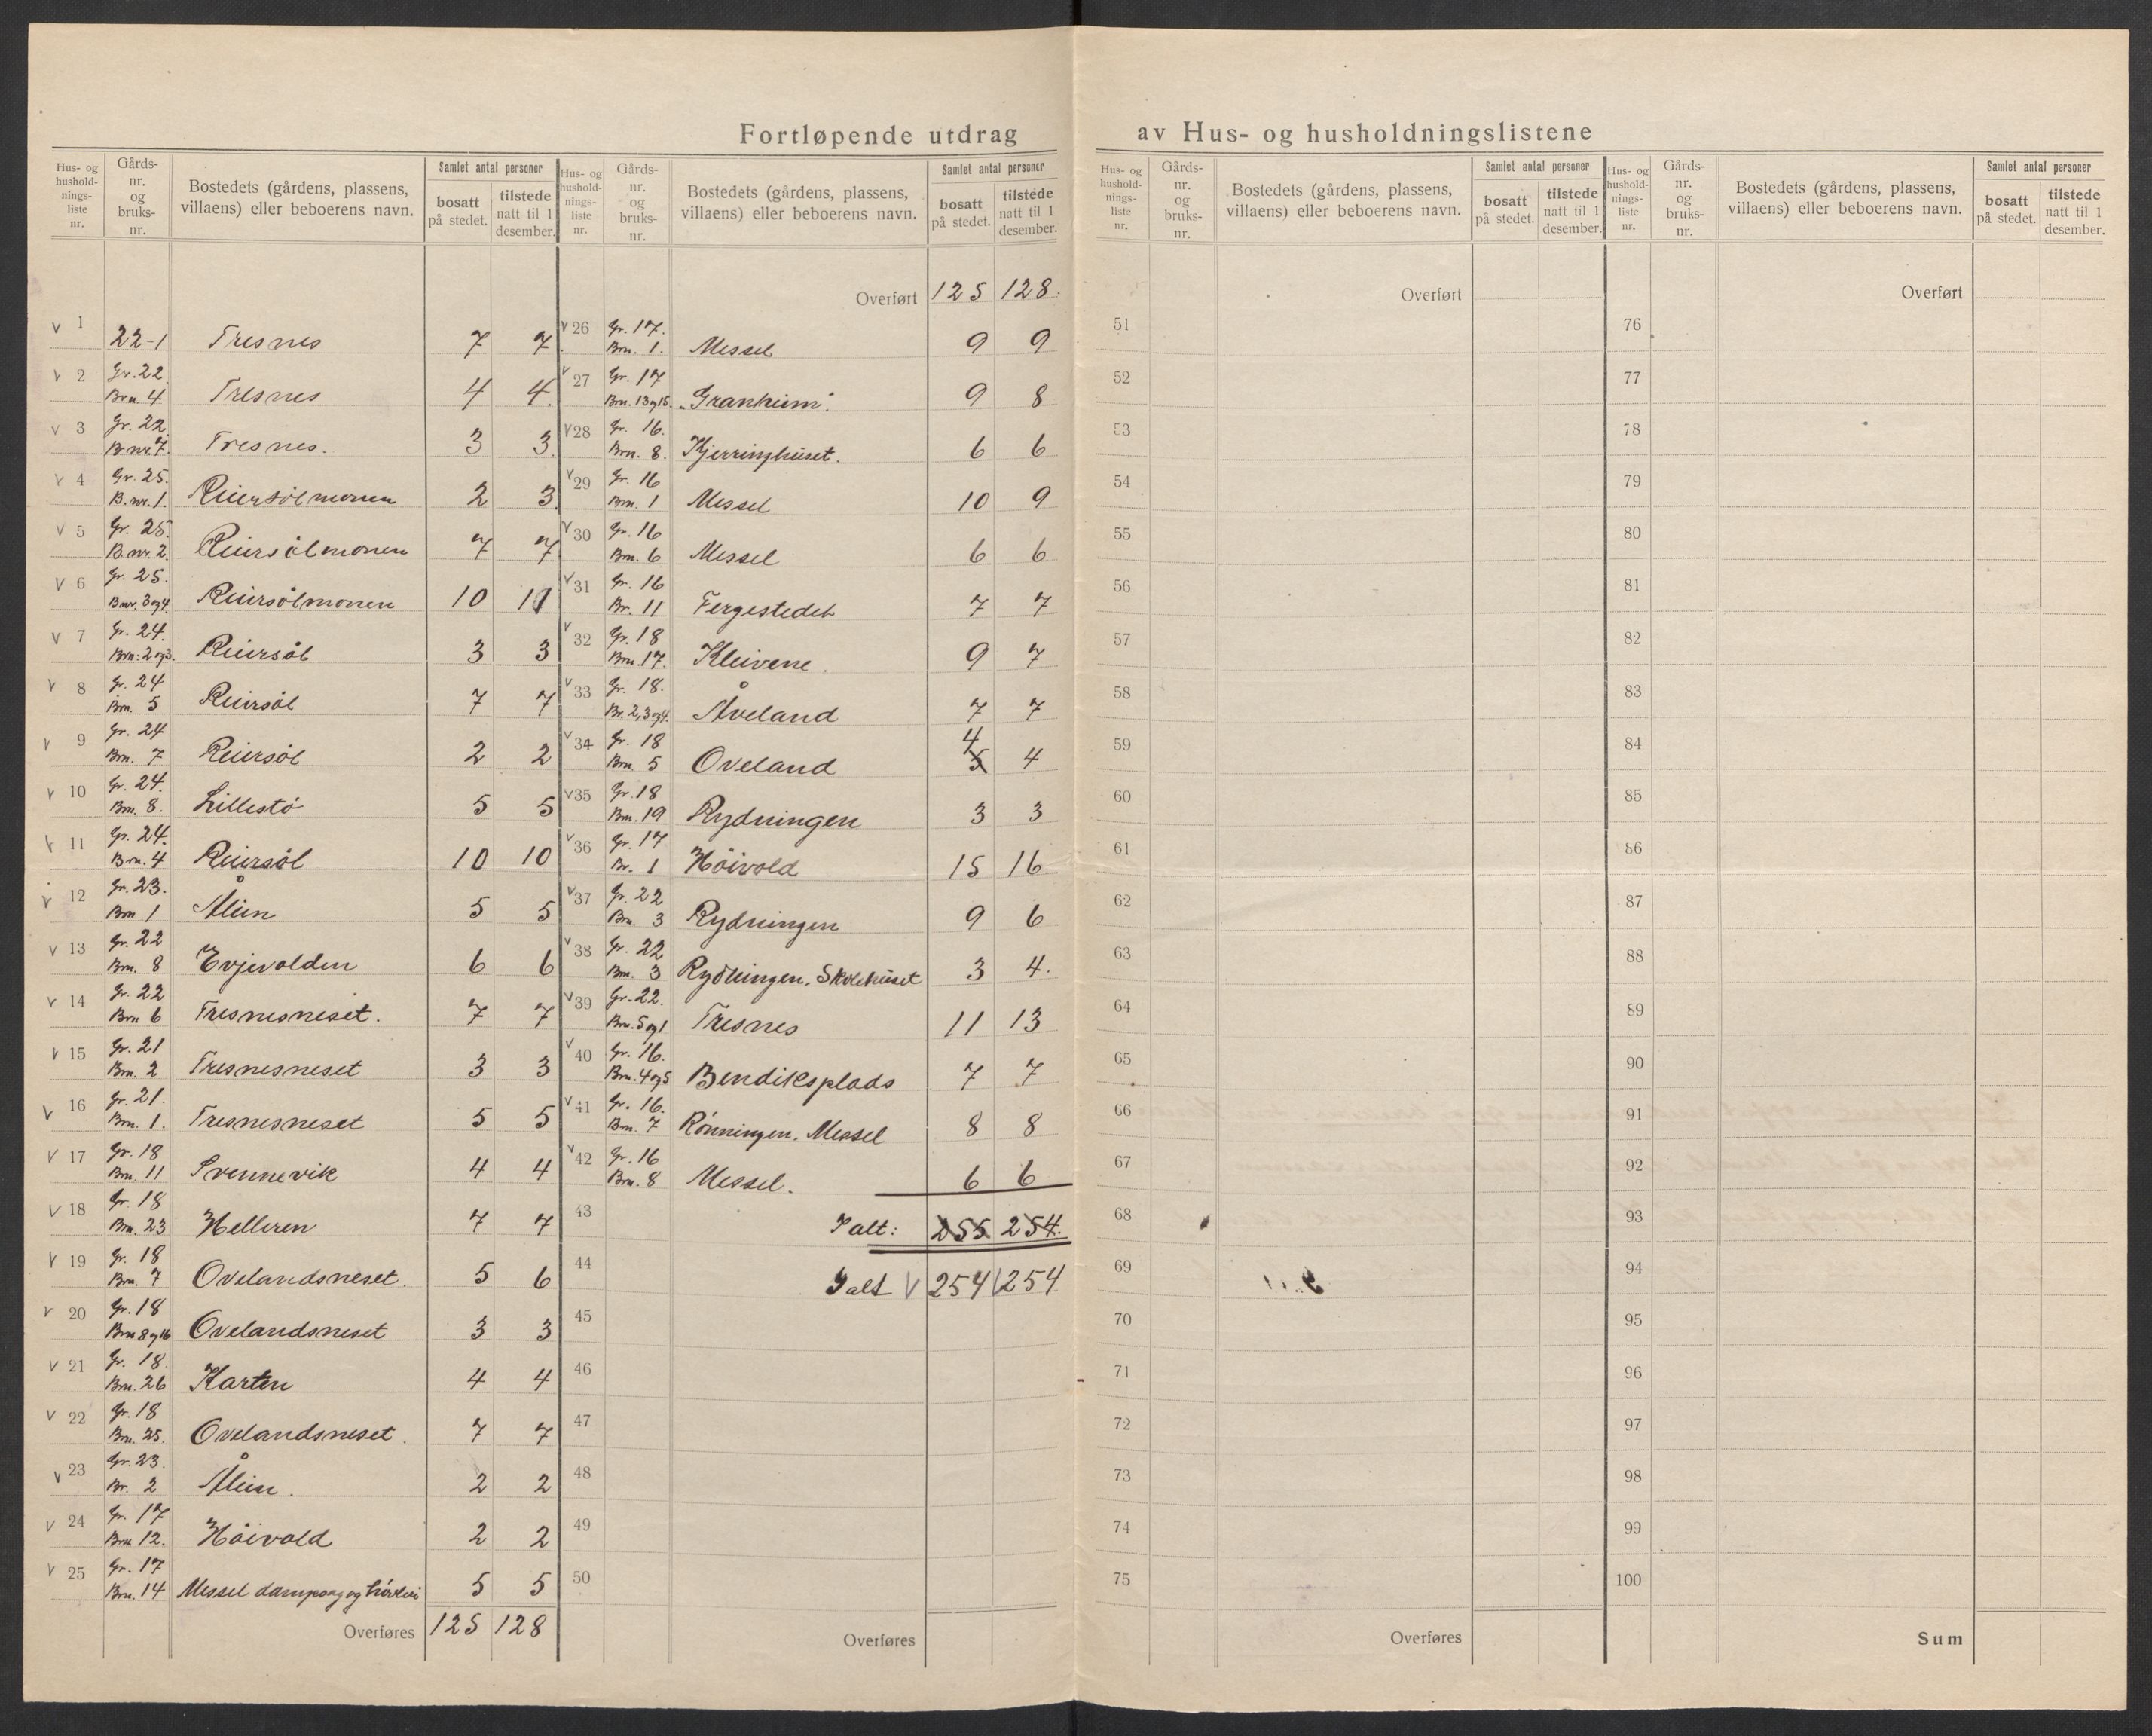 Fortløpende utdrag av Hus- og husholdningslistene
Hus- og hushold-nings-liste nr. | Gårds-nr. og bruks-nr. | Bostedets (gårdens, plassens, villaens) eller beboerens navn. | Samlet antal personer | bosatt på stedet. | tilstede natt til 1 desember.
v 1 22-1 Tresnes 7 7
v 2 Gr. 22 Brn. 4 Tresnes 4 4.
v 3 Gr. 22 B.nr. 7. Tresnes. 3 3
v 4 Gr. 25. B.nr. 1. Reiersölmonen 2 3
v 5 Gr. 25. B.nr. 2. Reiersölmonen 7 7
v 6 Gr. 25. Bnr. 3og4. Reiersölmonen 10 11
v 7 Gr. 24. Brn. 2og3. Reiersöl 3 3
v 8 Gr. 24 Brn. 5 Reiersöl 7 7
v 9 Gr. 24 Brn. 7 Reiersöl 2 2
v 10 Gr. 24. Brn. 8. Lillestö 5 5
v 11 Gr. 24. Brn. 4 Reiersöl 10 10
v 12 Gr. 23. Brn 1 Ålien 5 5
v 13 Gr. 22 Brn. 8 Evjevolden 6 6
v 14 Gr. 22 Brn 6 Tresnesneset. 7 7
v 15 Gr. 21 Brn. 2 Tresnesneset 3 3
v 16 Gr. 21. Brn. 1. Tresnesneset 5 5
v 17 Gr. 18 Brn. 11 Svennevik 4 4
v 18 Gr. 18 Brn. 23 Helleren 7 7
v 19 Gr. 18 Brn. 7 Ovelandsneset. 5 6
v 20 Gr. 18 Brn 8og16 Ovelandsneset 3 3
v 21 Gr. 18. Brn. 26 Karten 4 4
v 22 Gr. 18 Brn. 25. Ovelandsneset. 7 7
v 23 Gr. 23. Br. 2 Ålien. 2 2
v 24 Gr. 17 Brn 12. Höivold 2 2
v 25 Gr. 17 Brn. 14 Messel dampsag og hövleri 5 5
Overføres 125 128
Hus- og hushold-nings-liste nr. | Gårds-nr. og bruks-nr. | Bostedets (gårdens, plassens, villaens) eller beboerens navn. | Samlet antal personer | bosatt på stedet. | tilstede natt til 1 desember.
Overført 125 128.
v 26 Gr. 17. Brn. 1. Messel 9 9
v 27 Gr. 17 Brn. 13og15. "Granheim". 9 8
v 28 Gr. 16. Brn. 8. Kjerringhuset. 6 6
v 29 Gr. 16 Brn. 1 Messel 10 9
v 30 Gr. 16 Brn. 6 Messel 6 6
v 31 Gr. 16 Br. 11 Fergestedet 7 7
v 32 Gr. 18 Brn. 17. Kleivene. 9 7
v 33 Gr. 18. Br. 2,3og4. Åveland 7 7
v 34 Gr. 18 Brn. 5 Oveland 5 4 4
v 35 Gr. 18 Brn. 19 Rydningen 3 3
v 36 Gr. 17 Br. 1 Höivold 15 16
v 37 Gr. 22 Brn. 3 Rydningen 9 6
v 38 Gr. 22 Brn. 3 Rydningen. Skolehuset 3 4.
v 39 Gr. 22. Brn. 5og1 Tresnes 11 13
v 40 Gr. 16. Brn. 4og5 Bendiksplads 7 7
v 41 Gr. 16. Brn. 7 Rönningen. Messel 8 8
v 42 Gr. 16 Brn. 8 Messel. 6 6
43 I alt: 255 254.
44 I alt v 254 v 254
45
46
47
48
49
50
Overføres
Hus- og hushold-nings-liste nr. | Gårds-nr. og bruks-nr. | Bostedets (gårdens, plassens, villaens) eller beboerens navn. | Samlet antal personer | bosatt på stedet. | tilstede natt til 1 desember.
Overført
51
52
53
54
55
56
57
58
59
60
61
62
63
64
65
66
67
68
69
70
71
72
73
74
75
Overføres
Hus- og hushold-nings-liste nr. | Gårds-nr. og bruks-nr. | Bostedets (gårdens, plassens, villaens) eller beboerens navn. | Samlet antal personer | bosatt på stedet. | tilstede natt til 1 desember.
Overført
76
77
78
79
80
81
82
83
84
85
86
87
88
89
90
91
92
93
94
95
96
97
98
99
100
Sum